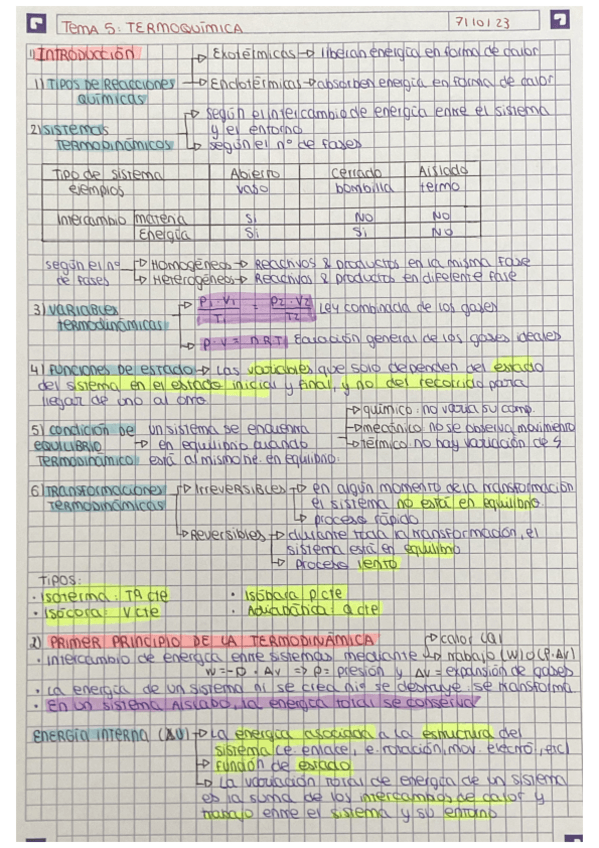 TEMA 5: TERMOQUÍMICA 7/10/23
1) INTRODUCCIÓN → Exotérmicas → liberan energía en forma de calor
1) TIPOS DE REACCIONES → Endotérmicas → absorben energía en forma de calor
QUÍMICAS
→ según el intercambio de energía entre el sistema
2) SISTEMAS y el entorno
TERMODINÁMICOS → según el nº de fases
Tipo de sistema Abierto Cerrado Aislado
ejemplos vaso bombilla termo
Intercambio materia Sí NO NO
Energía Sí Sí NO
según el nº → Homogéneos → Reactivos & productos en la misma fase
de fases → Heterogéneos → Reactivos & productos en diferente fase
3) VARIABLES → P1·V1 / T1 = P2·V2 / T2 Ley combinada de los gases
termodinámicas
→ P·V = nRT Ecuación general de los gases ideales
4) FUNCIONES DE ESTADO → Las variables que solo dependen del estado
del sistema en el estado inicial y final, y no del recorrido para
llegar de uno al otro.
→ químico: no varía su comp.
5) CONDICIÓN DE un sistema se encuentra → mecánico: no se observa movimiento
EQUILIBRIO → en equilibrio cuando → térmico: no hay variación de
TERMODINÁMICO está al mismo en equilibrio.
6) TRANSFORMACIONES → Irreversibles → en algún momento de la transformación
TERMODINÁMICAS el sistema no está en equilibrio
→ proceso rápido
→ Reversibles → durante toda la transformación, el
sistema está en equilibrio
→ proceso lento
TIPOS:
· Isoterma: Tª cte · Isóbara: p cte
· Isócora: V cte · Adiabática: Q cte
2) PRIMER PRINCIPIO DE LA TERMODINÁMICA → calor (Q)
· Intercambio de energía entre sistemas mediante → trabajo (W) ó (P·ΔV)
W = -p · ΔV => P = presión y ΔV = expansión de gases
· La energía de un sistema ni se crea ni se destruye, se transforma
· En un sistema AISLADO, la energía total se conserva
ENERGÍA INTERNA (ΔU) → La energía asociada a la estructura del
sistema (e. enlace, e. rotación, mov. electró, etc)
→ Función de estado
→ La variación total de energía de un sistema
es la suma de los intercambios de calor y
trabajo entre el sistema y su entorno